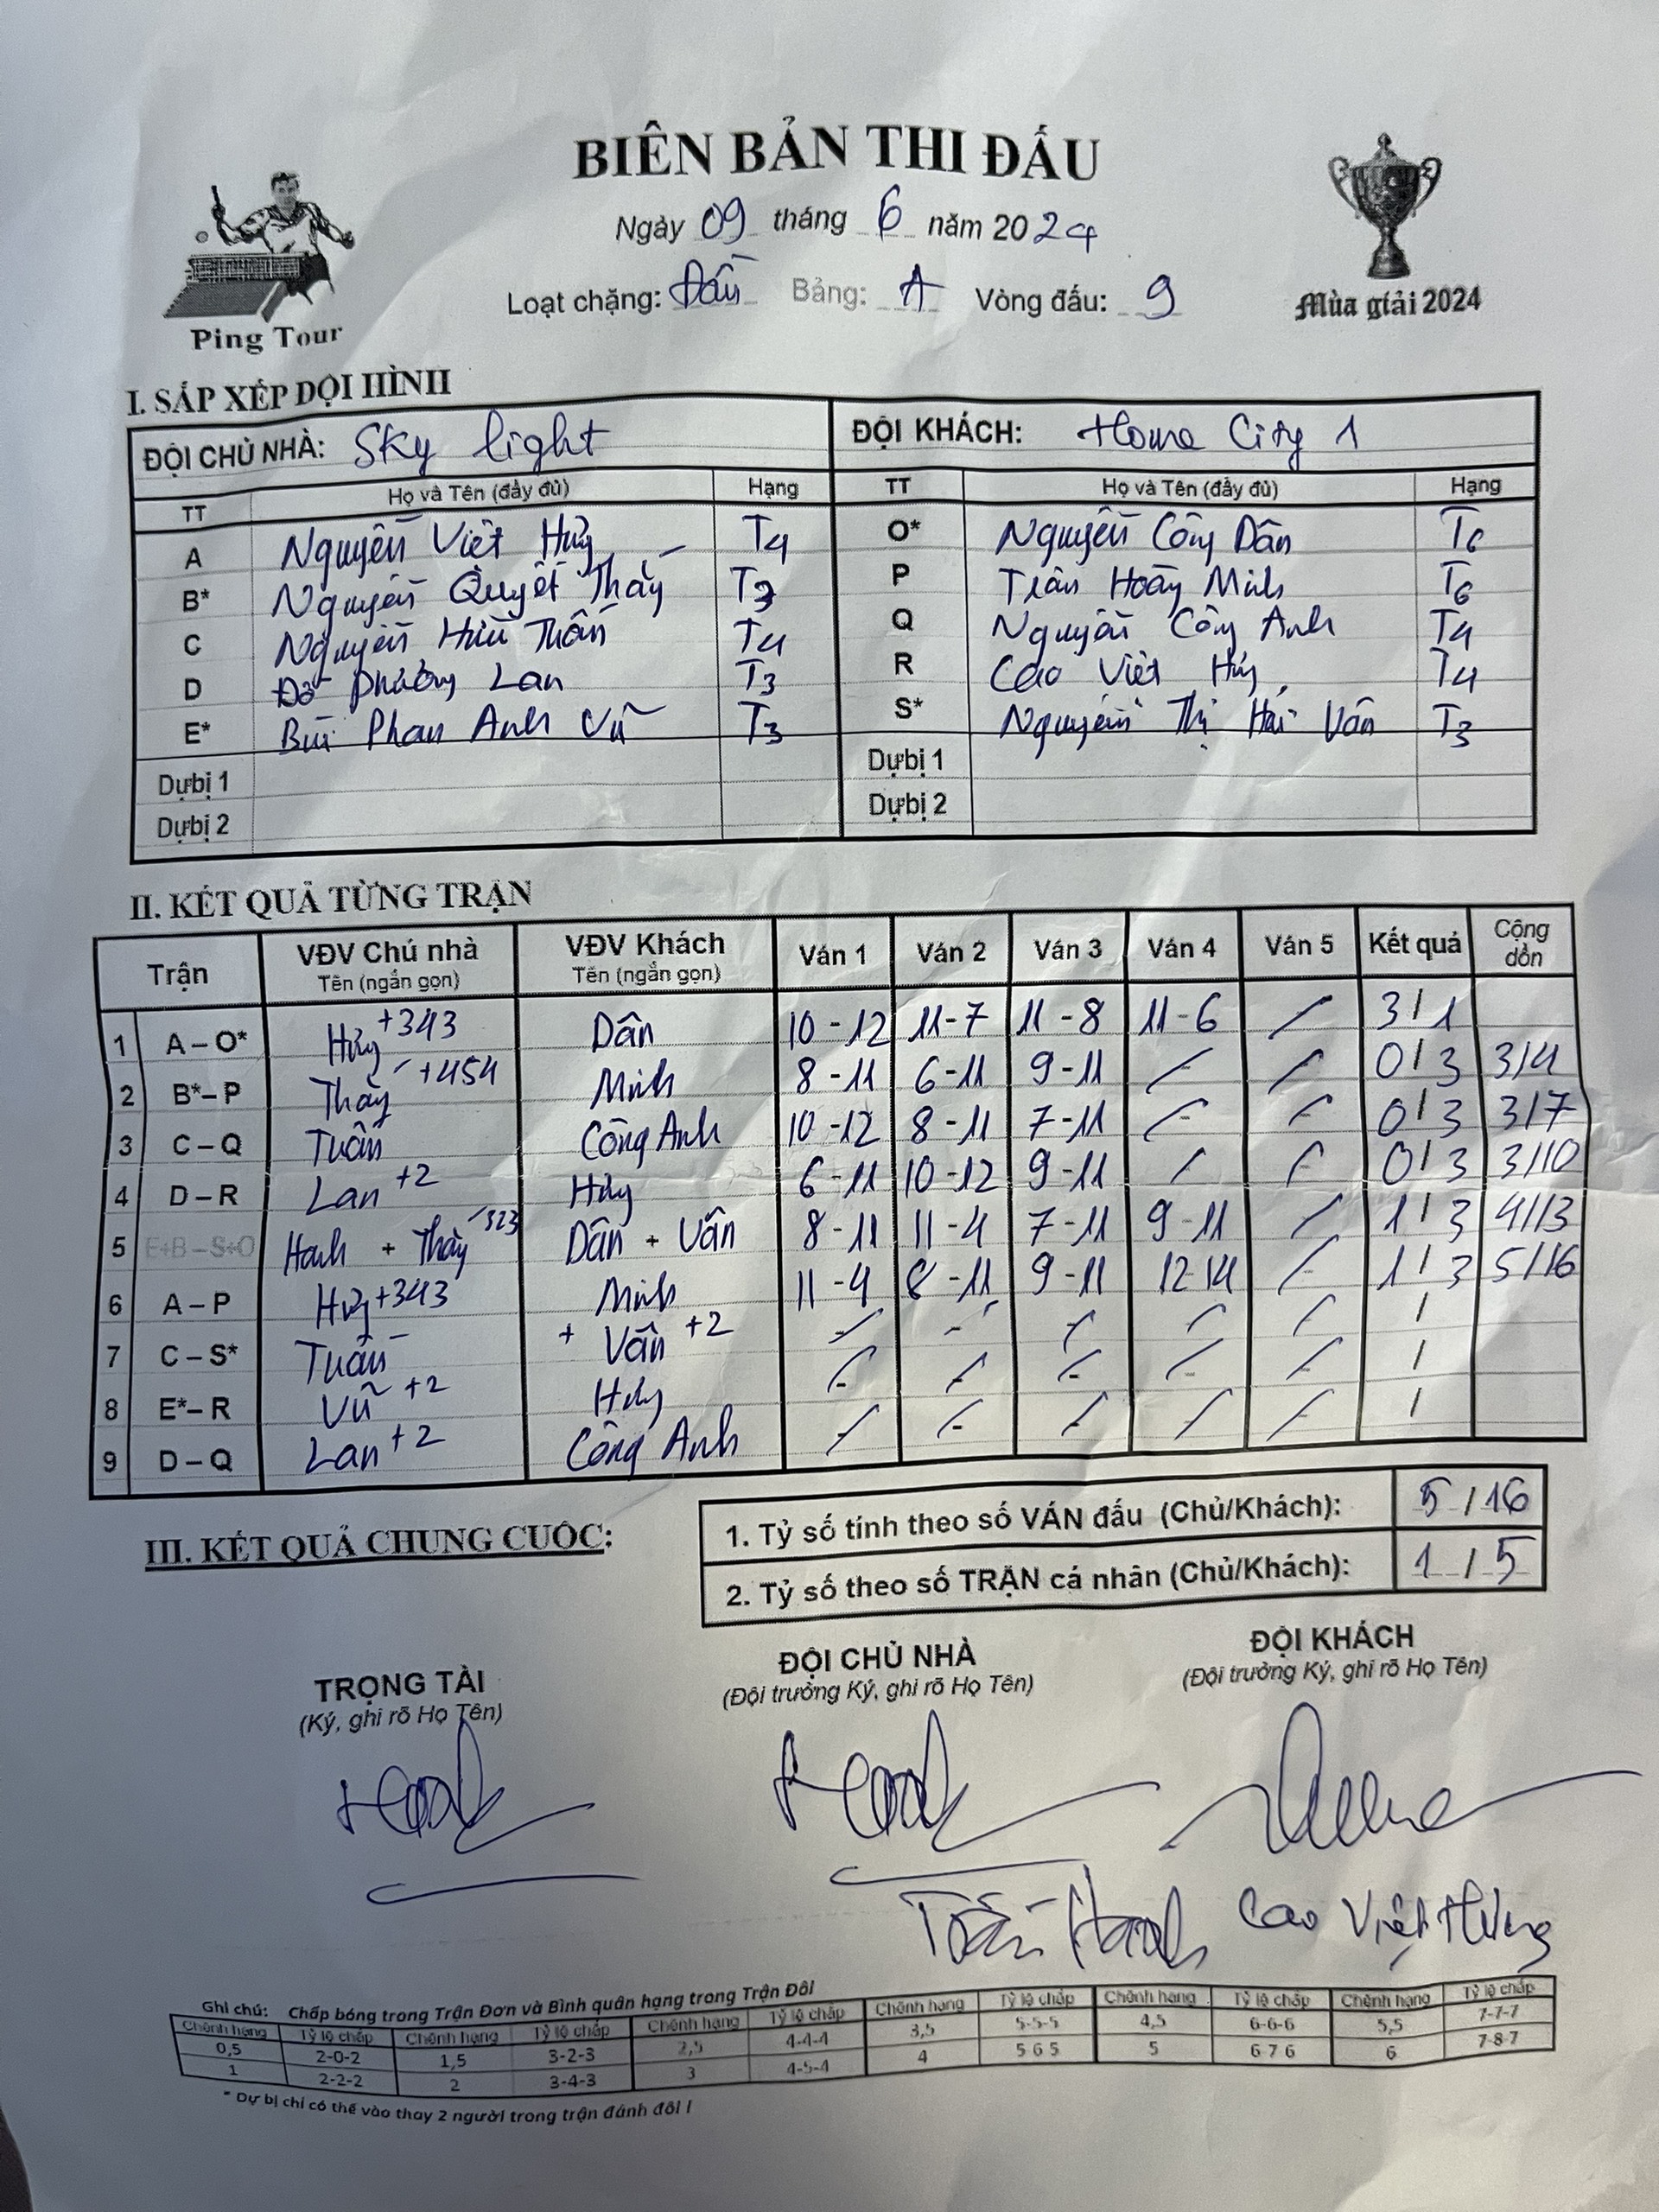 BIÊN BẢN THI ĐẤU
Ngày 09 tháng 6 năm 2024
Loạt chặng: Đấu Bảng: A Vòng đấu: 9
Ping Tour
Mùa giải 2024
I. SẮP XẾP ĐỘI HÌNH
ĐỘI CHỦ NHÀ: Sky light ĐỘI KHÁCH: Home City 1
TT Họ và Tên (đầy đủ) Hạng TT Họ và Tên (đầy đủ) Hạng
A Nguyễn Việt Hưng T4 O* Nguyễn Công Dân T6
B* Nguyễn Quyết Thắng T3 P Trần Hoàng Minh T6
C Nguyễn Hữu Tuấn T4 Q Nguyễn Công Anh T4
D Đỗ Phương Lan T3 R Cao Việt Hưng T4
E* Bùi Phan Anh Vũ T3 S* Nguyễn Thị Hải Vân T3
Dự bị 1 Dự bị 1
Dự bị 2 Dự bị 2
II. KẾT QUẢ TỪNG TRẬN
Trận VĐV Chủ nhà VĐV Khách Ván 1 Ván 2 Ván 3 Ván 4 Ván 5 Kết quả Cộng dồn
Tên (ngắn gọn) Tên (ngắn gọn)
1 A – O* Hưng +343 Dân 10 - 12 11 - 7 11 - 8 11 - 6 / 3 / 1
2 B* – P Thắng +454 Minh 8 - 11 6 - 11 9 - 11 / / 0 / 3 3/4
3 C – Q Tuấn Công Anh 10 - 12 8 - 11 7 - 11 / / 0 / 3 3/7
4 D – R Lan +2 Hưng 6 - 11 10 - 12 9 - 11 / / 0 / 3 3/10
5 E+B – S+O Hanh + Thắng 323 Dân + Vân 8 - 11 11 - 4 7 - 11 9 - 11 / 1 / 3 4/13
6 A – P Hưng +343 Minh 11 - 4 8 - 11 9 - 11 12 - 14 / 1 / 3 5/16
7 C – S* Tuấn + Vân +2 / / / / / /
8 E* – R Vũ +2 Hưng / / / / / /
9 D – Q Lan +2 Công Anh / / / / / /
III. KẾT QUẢ CHUNG CUỘC:
1. Tỷ số tính theo số VÁN đấu (Chủ/Khách): 5 / 16
2. Tỷ số theo số TRẬN cá nhân (Chủ/Khách): 1 / 5
TRỌNG TÀI ĐỘI CHỦ NHÀ ĐỘI KHÁCH
(Ký, ghi rõ Họ Tên) (Đội trưởng Ký, ghi rõ Họ Tên) (Đội trưởng Ký, ghi rõ Họ Tên)
Trần Hanh Cao Việt Hưng
Ghi chú: Chấp bóng trong Trận Đơn và Bình quân hạng trong Trận Đôi
Chênh hạng Tỷ lệ chấp Chênh hạng Tỷ lệ chấp Chênh hạng Tỷ lệ chấp Chênh hạng Tỷ lệ chấp Chênh hạng Tỷ lệ chấp Chênh hạng Tỷ lệ chấp
0,5 2-0-2 1,5 3-2-3 2,5 4-4-4 3,5 5-5-5 4,5 6-6-6 5,5 7-7-7
1 2-2-2 2 3-4-3 3 4-5-4 4 5 6 5 5 6 7 6 6 7-8-7
* Dự bị chỉ có thể vào thay 2 người trong trận đánh đôi !